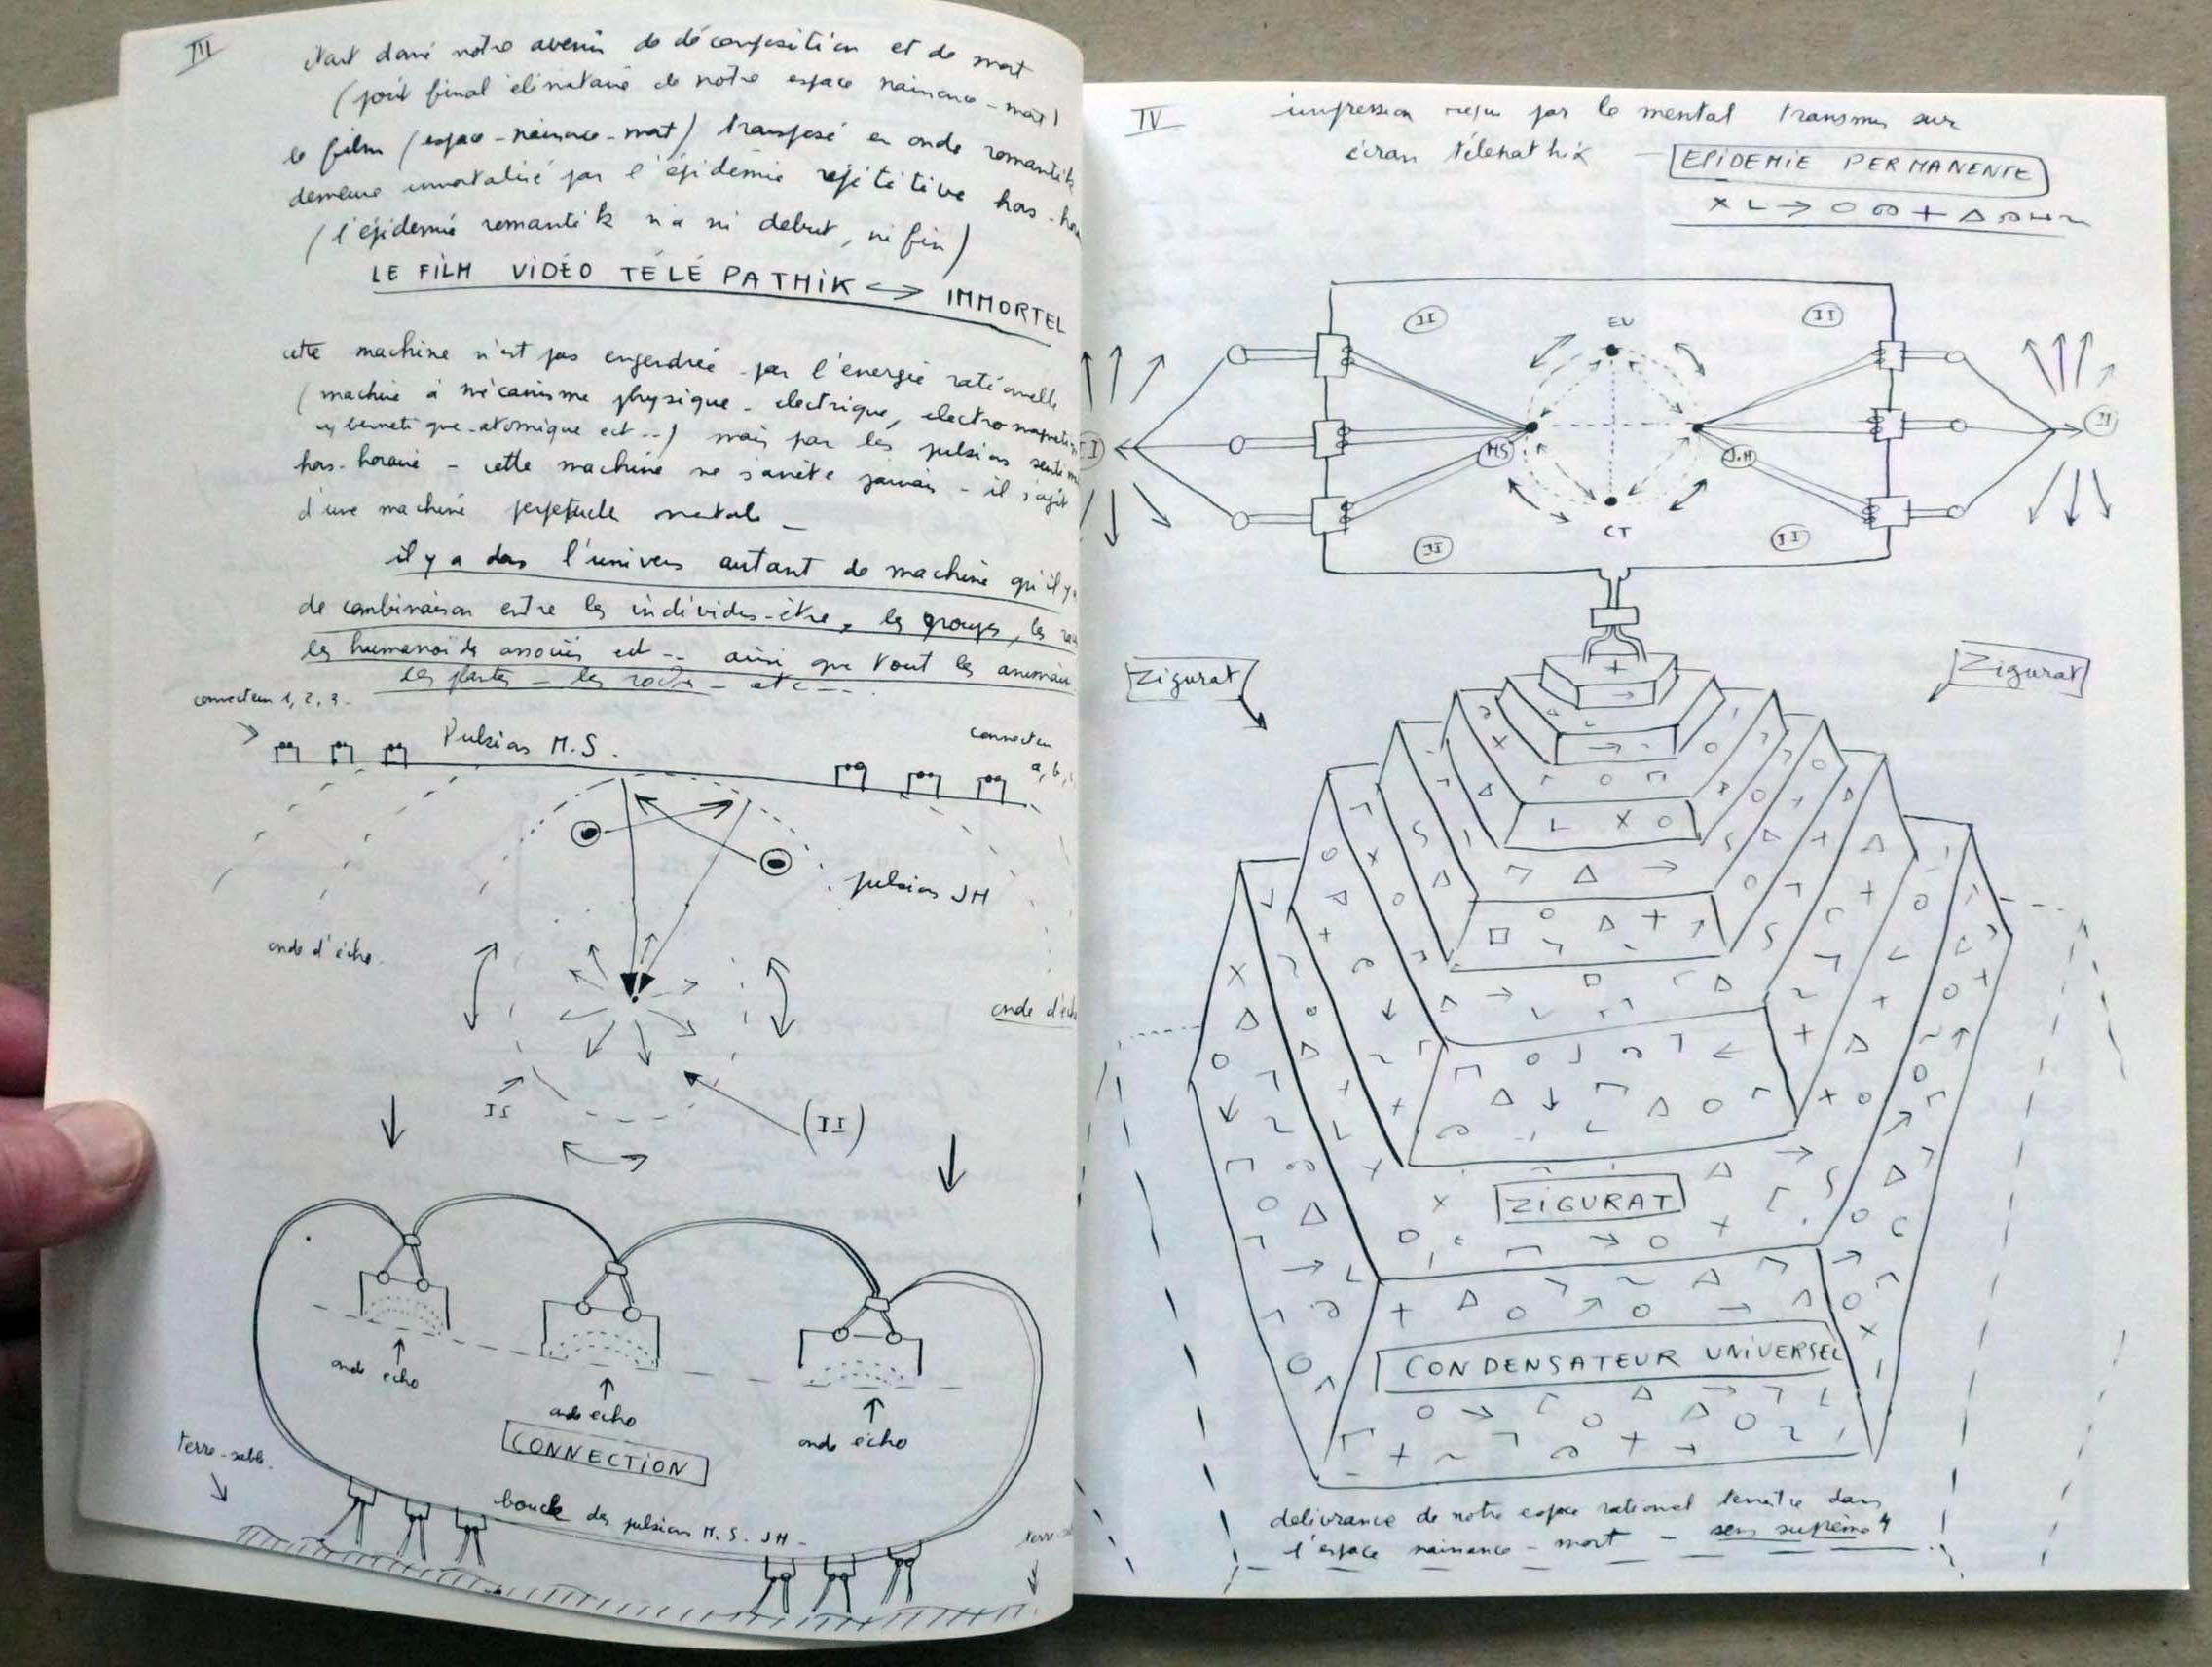 III
étant doné notre avenir de décomposition et de mort
(point final élémentaire de notre espace naissance-mort)
le film (espace-naissance-mort) transposé en onde romantik
demeure immortalisé par l'épidémie répétitive hors-ho
(l'épidémie romantik n'a ni début, ni fin)
LE FILM VIDÉO TÉLÉPATHIK ↔ IMMORTEL
cette machine n'est pas engendrée par l'énergie rationelle
(machine à mécanisme physique - electrique, electromagneti
cyberneti que-atomique ect...) mais par les pulsions
hors-horaire - cette machine ne s'arrête jamais - il s'agit
d'une machine perpetuelle
il y a dans l'univers autant de machine qu'il y
de combinaison entre les individus-être, les groupes, les
les humanoïdes associés ect -- ainsi que tout les animaux
les plantes - les roches - etc ---
connecteur 1, 2, 3.
Pulsions M.S.
connecteur
a, b,
pulsions JH
onde d'écho.
onde d'écho
II
(II)
onde écho
onde écho
onde écho
CONNECTION
terre-sable.
boucle des pulsions M.S. JH -
IV
impression reçue par le mental transmis sur
écran télépathik - EPIDEMIE PERMANENTE
X L → O + Δ
II
EU
II
I
MS
J.H
II
CT
II
Zigurat
Zigurat
ZIGURAT
CONDENSATEUR UNIVERSEL
délivrance de notre espace rationel dans
l'espace naissance - mort - sens suprême